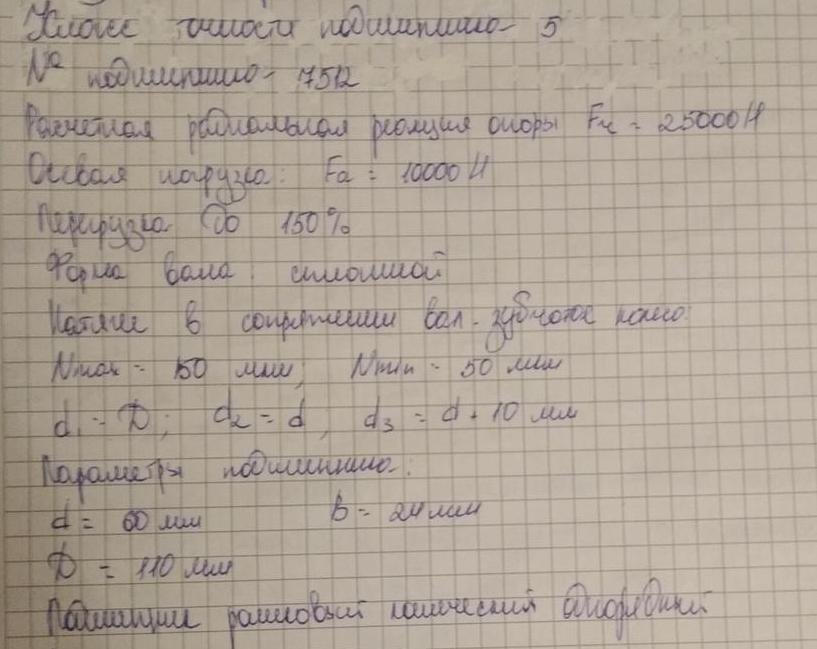 Класс точности подшипника - 5
№ подшипника - 7512
Расчетная радиальная реакция опоры Fr = 25000 Н
Осевая нагрузка: Fa = 10000 Н
Перегрузка до 150%
Форма вала: сплошной
Натяг в сопряжении вал - зубчатое колесо:
Nmax = 150 мкм; Nmin = 50 мкм
d₁ = D; d₂ = d; d₃ = d + 10 мм
Параметры подшипника:
d = 60 мм B = 24 мм
D = 110 мм
Подшипник роликовый конический однорядный